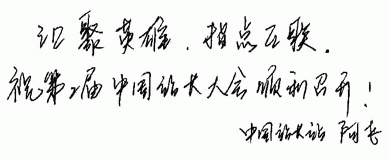 汇聚英雄，指点互联。
祝第2届中国站长大会顺利召开！
中国站长站 阿长